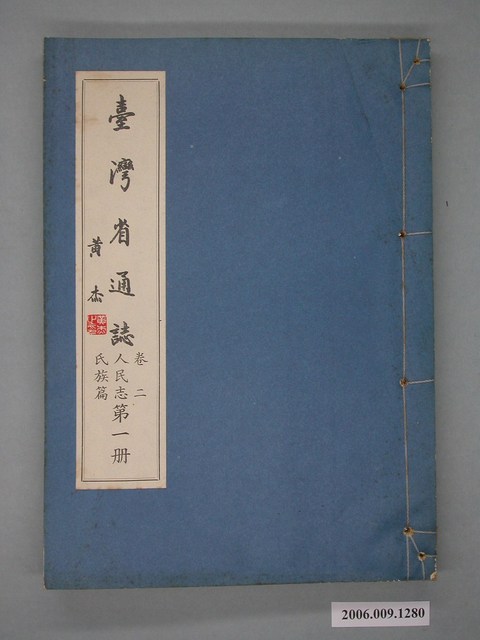 臺灣省通誌
黃杰
卷二
人民志
氏族篇
第一册
2006.009.1280